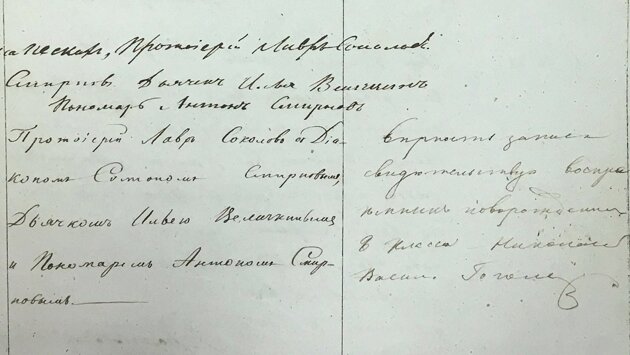 Протоіерей Лавръ Соколовъ.
Смирновъ Дьячекъ Илья
Пономарь Антонъ Смирновъ
Протоіерей Лавръ Соколовъ съ Діа-
кономъ Смирновымъ,
Дьячкомъ Ильею Величкинымъ
и Пономаремъ Антономъ Смир-
новымъ.
Вѣрность записи
свидѣтельствую воспрі
8 класса Николай
Васил. Гоголь